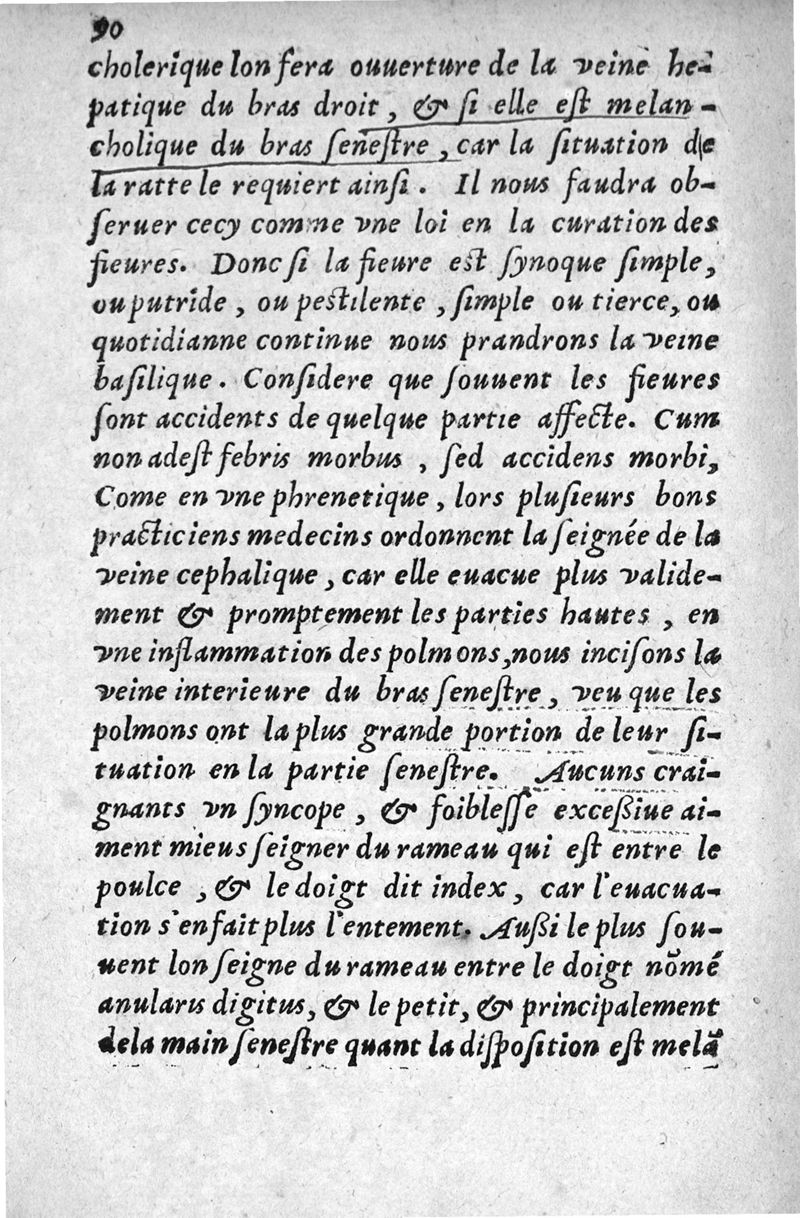 90
cholerique lon ſera ouuerture de la veine he-
patique du bras droit, & ſi elle eſt melan-
cholique du bras ſeneſtre, car la ſituation de
la ratte le requiert ainſi. Il nous faudra ob-
ſeruer cecy comme vne loi en la curation des
fieures. Donc ſi la fieure eſt ſynoque ſimple,
ou putride, ou peſtilente, ſimple ou tierce, ou
quotidianne continue nous prandrons la veine
baſilique. Conſidere que ſouuent les fieures
ſont accidents de quelque partie affecte. Cum
non adeſt febris morbus, ſed accidens morbi,
Come en vne phrenetique, lors pluſieurs bons
practiciens medecins ordonnent la ſeignée de la
veine cephalique, car elle euacue plus valide-
ment & promptement les parties hautes, en
vne inflammation des polmons, nous inciſons la
veine interieure du bras ſeneſtre, veu que les
polmons ont la plus grande portion de leur ſi-
tuation en la partie ſeneſtre. Aucuns crai-
gnants vn ſyncope, & foibleſſe exceßiue ai-
ment mieus ſeigner du rameau qui eſt entre le
poulce, & le doigt dit index, car l'euacua-
tion s'en fait plus l'entement. Außi le plus ſou-
uent lon ſeigne du rameau entre le doigt nõmé
anularis digitus, & le petit, & principalement
de la main ſeneſtre quant la diſpoſition eſt melã